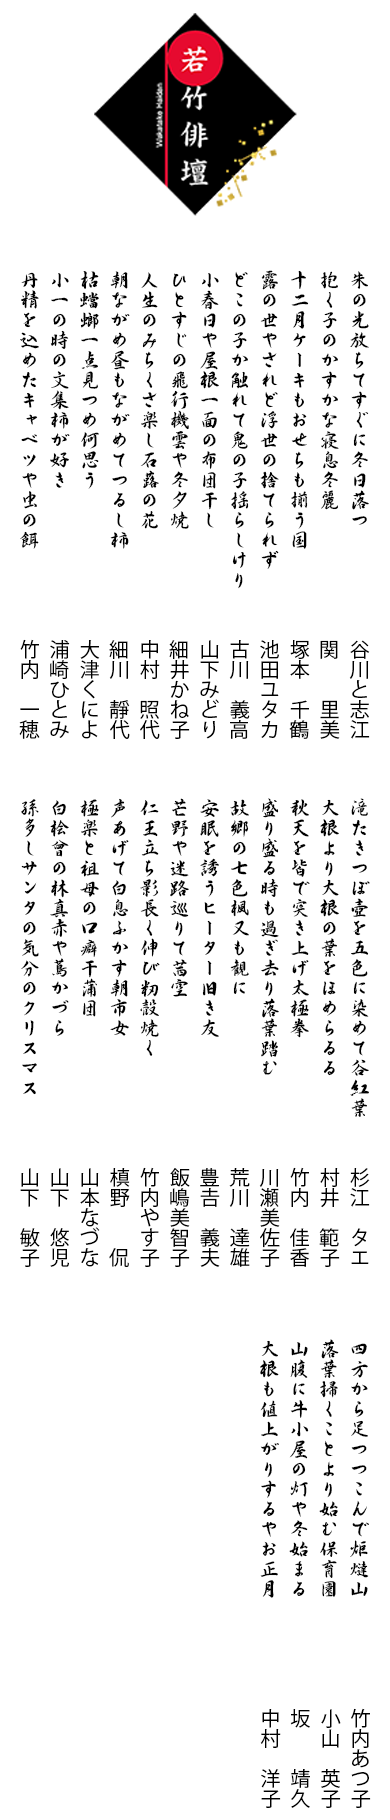 若竹俳壇
Wakatake Haidan
朱の光放ちてすぐに冬日落つ
抱く子のかすかな寝息冬麗
十二月ケーキもおせちも揃う国
露の世やされど浮世の捨てられず
どこの子か触れて鬼の子揺らしけり
小春日や屋根一面の布団干し
ひとすじの飛行機雲や冬夕焼
人生のみちくさ楽し石蕗の花
朝ながめ昼もながめてつるし柿
枯蟷螂一点見つめ何思う
小一の時の文集柿が好き
丹精を込めたキャベツや虫の餌
谷川と志江
関 里美
塚本 千鶴
池田ユタカ
古川 義高
山下みどり
細井かね子
中村 照代
細川 靜代
大津くによ
浦崎ひとみ
竹内 一穂
滝たきつぼ壷を五色に染めて谷紅葉
大根より大根の葉をほめらるる
秋天を皆で突き上げ太極拳
盛り盛る時も過ぎ去り落葉踏む
故郷の七色楓又も観に
安眠を誘うヒーター旧き友
芒野や迷路巡りて茜空
仁王立ち影長く伸び籾殻焼く
声あげて白息ふかす朝市女
極楽と祖母の口癖干蒲団
白桧曾の林真赤や蔦かづら
孫多しサンタの気分のクリスマス
杉江 タエ
村井 範子
竹内 佳香
川瀬美佐子
荒川 達雄
豊吉 義夫
飯嶋美智子
竹内やす子
槙野 侃
山本なづな
山下 悠児
山下 敏子
四方から足つつこんで炬燵山
落葉掃くことより始む保育園
山腹に牛小屋の灯や冬始まる
大根も値上がりするやお正月
竹内あつ子
小山 英子
坂 靖久
中村 洋子